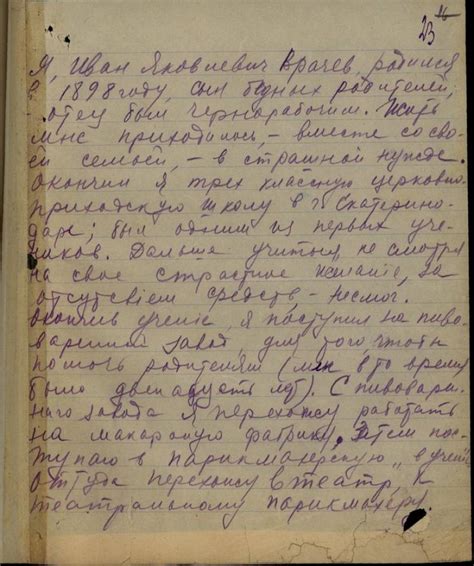 16
23
Я, Иван Яковлевич Врачев, родился
в 1898 году, сын бедных родителей,
отец был чернорабочим. Жить
мне приходилось, – вместе со сво-
ей семьей, – в страшной нужде.
Окончил я трех классную церковно-
приходскую школу в г. Екатерино-
даре; был одним из первых уче-
ников. Дальше учиться, не смотря
на свое страстное желаніе, за
отсутсвіем средств, – не смог.
Окончив ученіе, я поступил на пиво-
варенный завод, для того чтобы
помочь родителям (мне в то время
было двенадцать лет). С пивоварен-
наго завода я перехожу работать
на макаронную фабрику. Затем пос-
тупаю в парикмахерскую „в ученіе“
оттуда перехожу в театр, к
театральному парикмахеру.